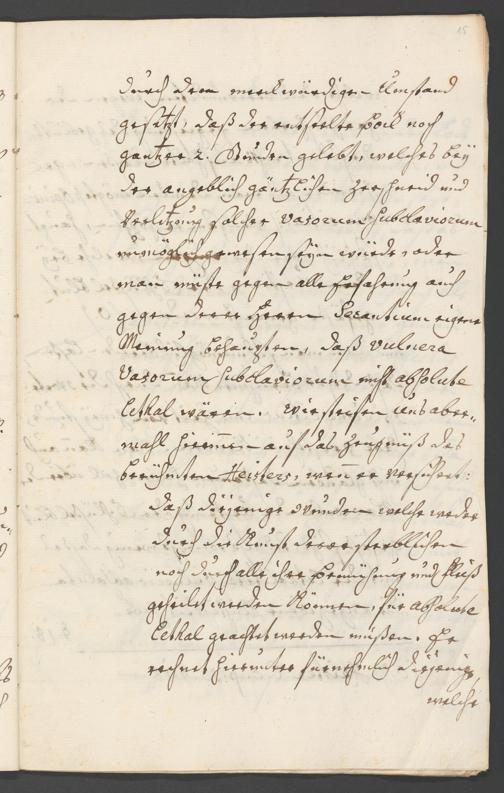 15
durch den merckwürdigen Umstand
gesetzt, daß der entseelte Pohl noch
gantzer 2. Stunden gelebt, welches bey
der angeblich gäntzlichen Zerschneid und
Verletzung solcher Vasorum Subclaviorum
unmöglich gewesen seyn würde, oder
man müste gegen alle Erfahrung auch
gegen derer Herren Secantium eigene
Meinung behaupten, daß Vulnera
Vasorum Subclaviorum nicht absolute
lethal wären. Wir steifen uns aber-
mahl hierinnen auf das Zeugniß des
berühmten Heisters, wenn er versichert:
daß diejenige Wunden welche weder
durch die Kunst derer sterblichen
noch durch alle ihre Bemühung und Fleiß
geheilet werden können, für absolute
lethal geachtet werden müßen. Er
rechnet hierunter fürnehmlich diejenige,
welche